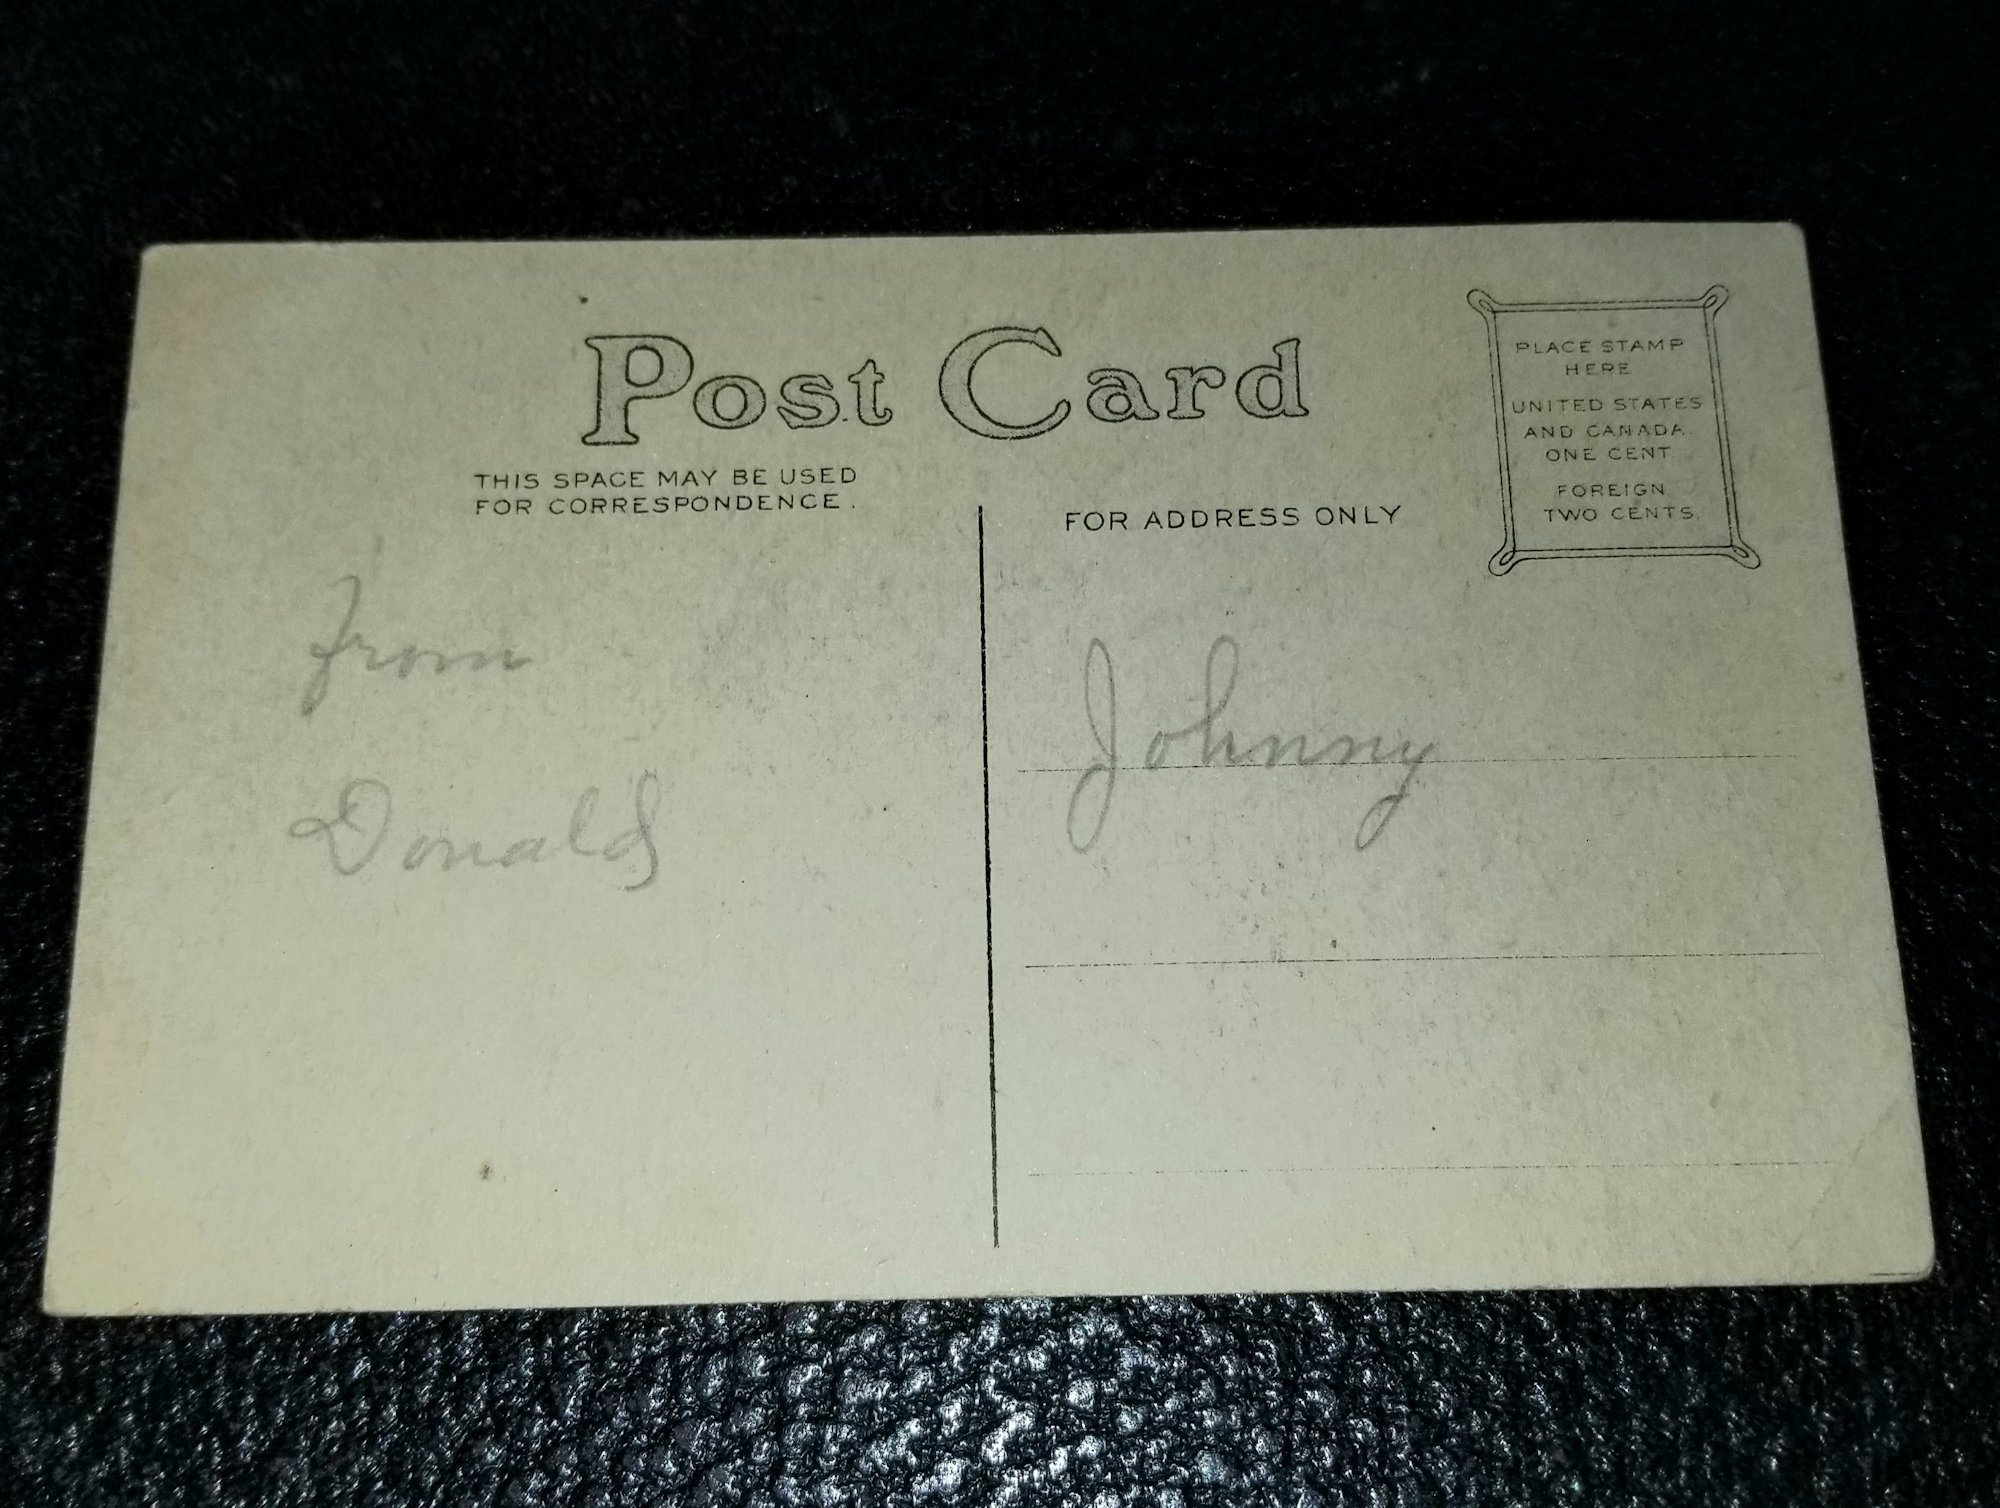 Post Card
THIS SPACE MAY BE USED
FOR CORRESPONDENCE.
FOR ADDRESS ONLY
PLACE STAMP
HERE
UNITED STATES
AND CANADA
ONE CENT
FOREIGN
TWO CENTS.
from
Donald
Johnny